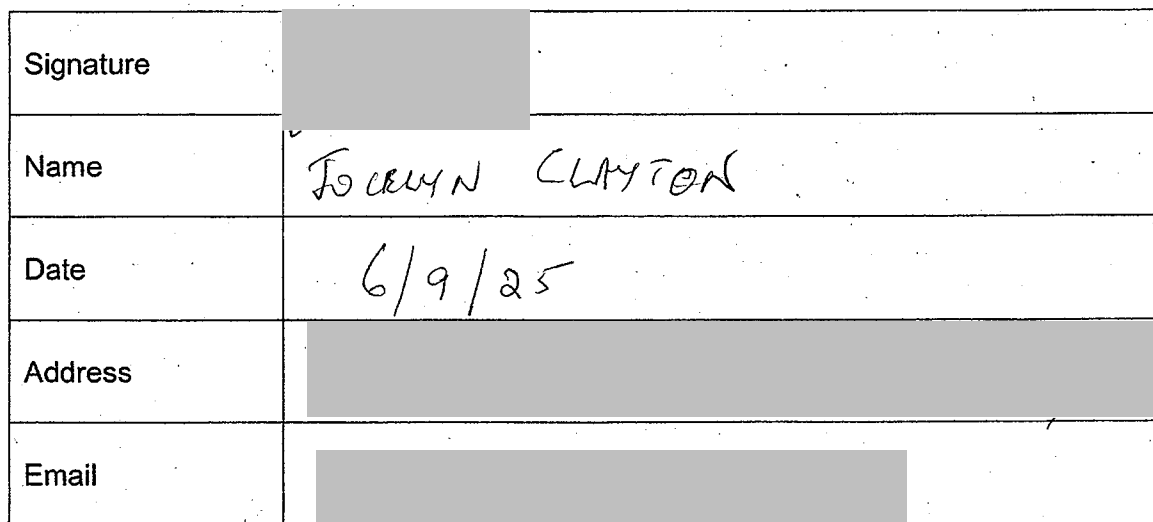 Signature
Name JOCELYN CLAYTON
Date 6/9/25
Address
Email